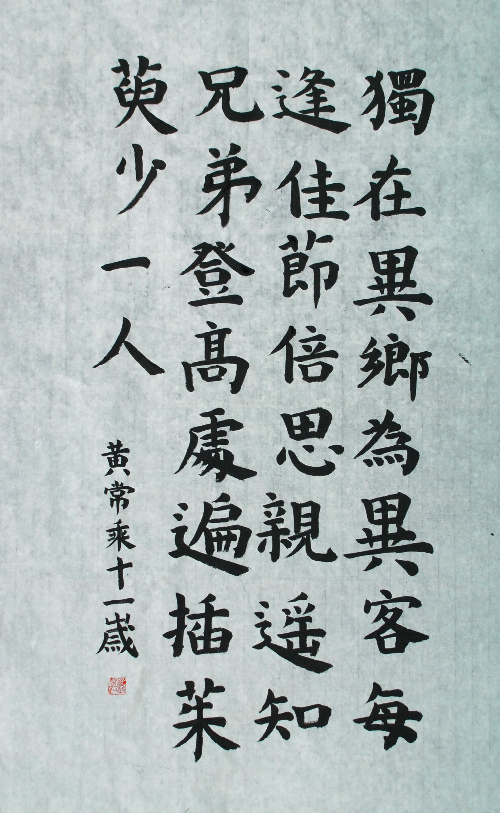 獨在異鄉為異客每
逢佳節倍思親遥知
兄弟登高處遍插茱
萸少一人
黄常乘十一歲